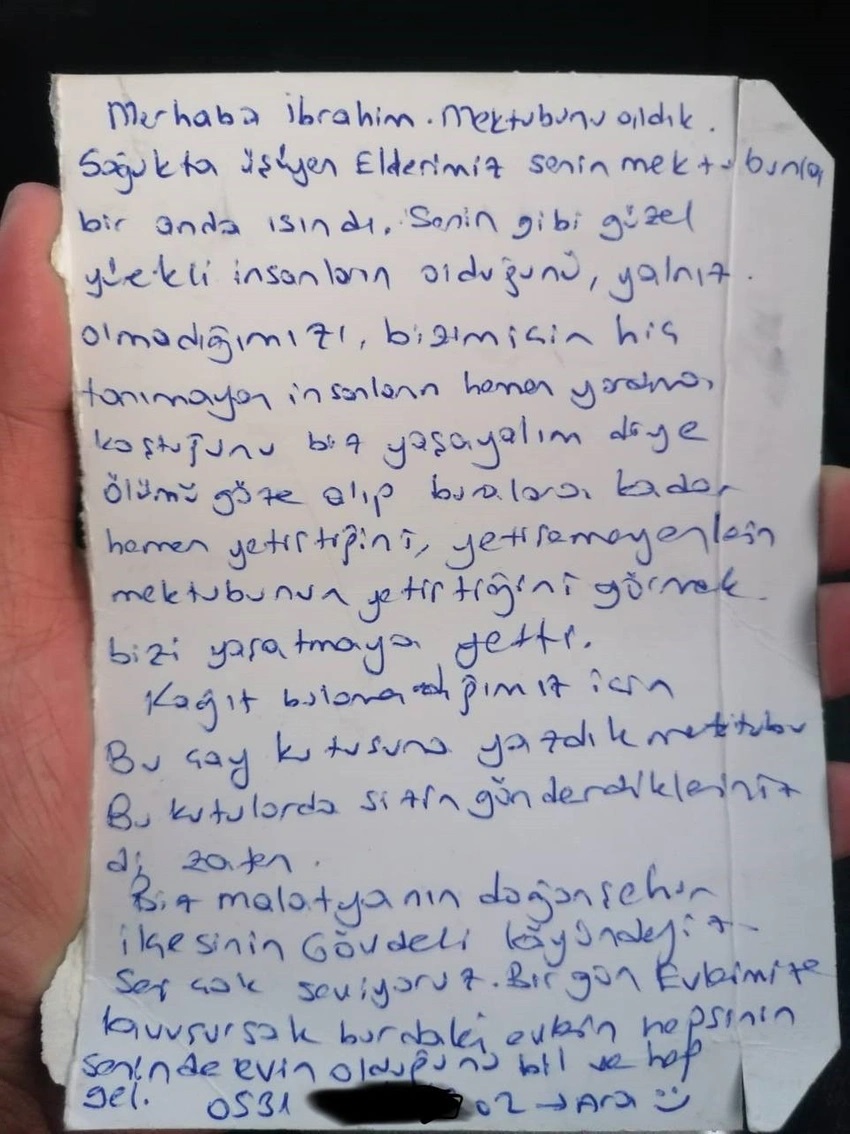 Merhaba ibrahim. Mektubunu aldık.
Soğukta üşüyen Ellerimiz senin mektubunla
bir anda ısındı. Senin gibi güzel
yürekli insanların olduğunu, yalnız
olmadığımızı, bizim için hiç
tanımayan insanların hemen yardıma
koştuğunu biz yaşayalım diye
Ölümü göze alıp buralara kadar
hemen yetiştiğini, yetişemeyenlerin
mektubunun yetiştiğini görmek
bizi yaşatmaya yetti.
Kağıt bulamadığımız için
Bu çay kutusuna yazdık mektubu
Bu kutularda sizin gönderdikleriniz
di zaten.
Biz malatyanın doğanşehir
ilçesinin Gövdeli köyündeyiz
Seni çok seviyoruz. Bir gün Evlerimize
kavuşursak burdaki evlerin hepsinin
seninde evin olduğunu bil ve hep
gel. 0531 02 → Ara :)